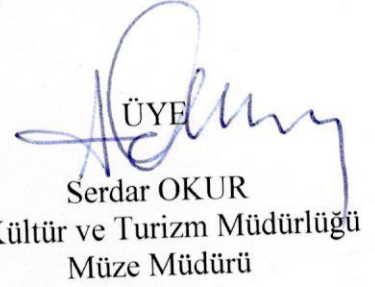 ÜYE
Serdar OKUR
Kültür ve Turizm Müdürlüğü
Müze Müdürü